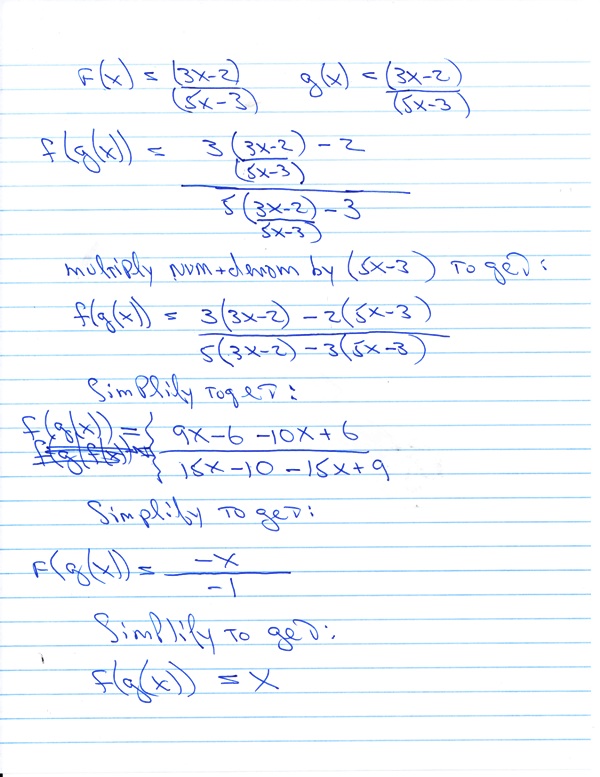 F(x) = (3x-2)/(5x-3) g(x) = (3x-2)/(5x-3)
f(g(x)) = (3(3x-2)/(5x-3) - 2)/(5(3x-2)/(5x-3) - 3)
multiply num+denom by (5x-3) to get:
f(g(x)) = (3(3x-2) - 2(5x-3))/(5(3x-2) - 3(5x-3))
Simplify to get:
f(g(x)) = { (9x-6-10x+6)/(15x-10-15x+9)
f(g(f(x))
Simplify to get:
F(g(x)) = -x/-1
Simplify to get:
f(g(x)) = x